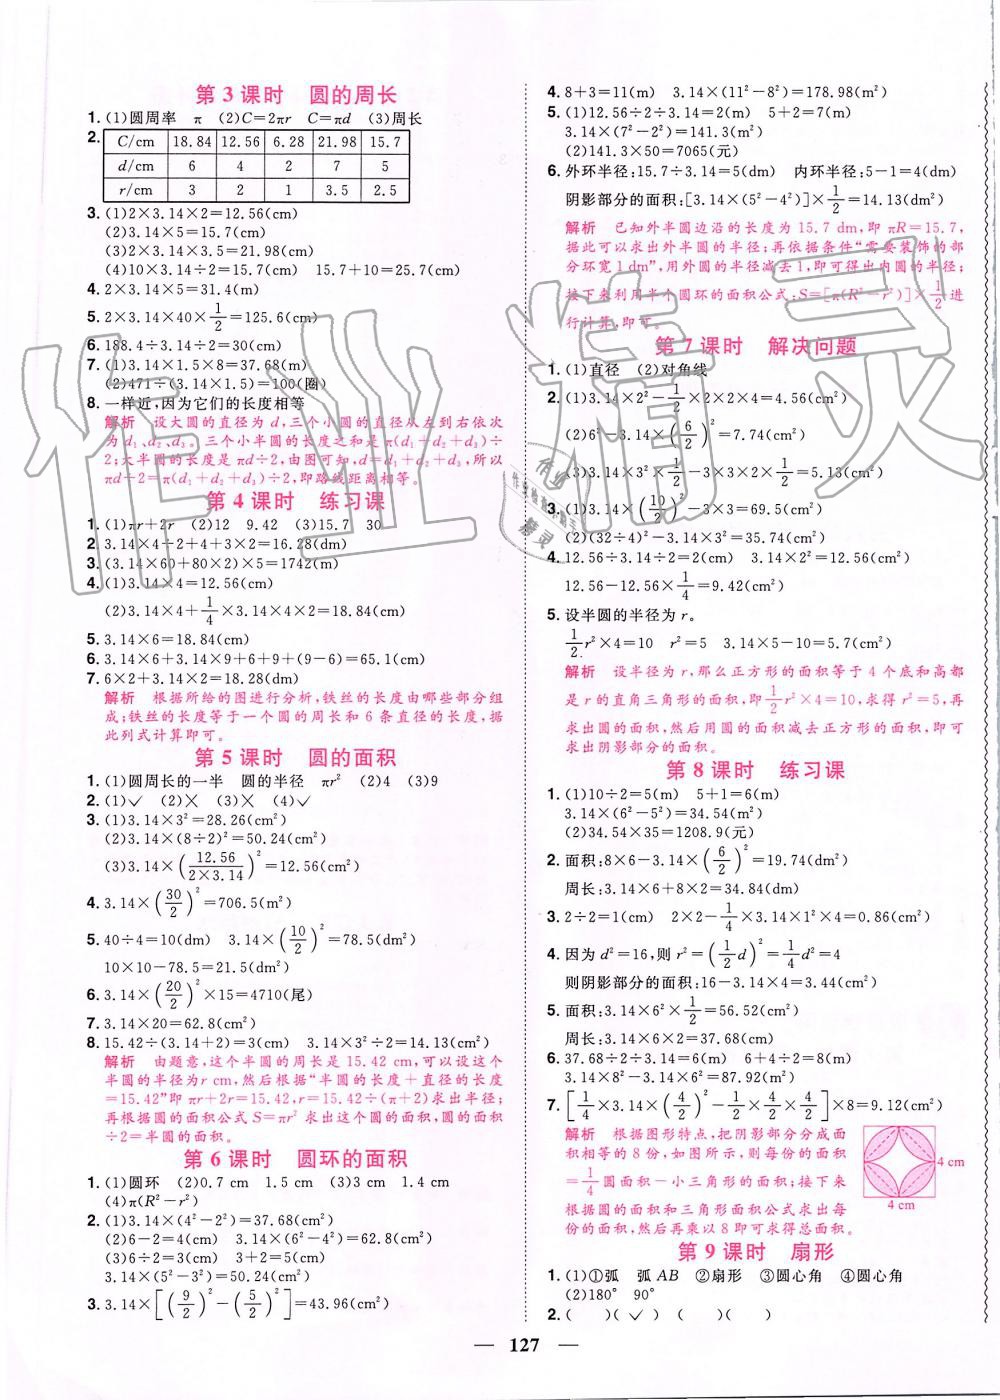 第3课时 圆的周长
1. (1)圆周率 π (2)C=2πr C=πd (3)周长
2. C/cm 18.84 12.56 6.28 21.98 15.7
d/cm 6 4 2 7 5
r/cm 3 2 1 3.5 2.5
3. (1)2×3.14×2=12.56(cm)
(2)3.14×5=15.7(cm)
(3)2×3.14×3.5=21.98(cm)
(4)10×3.14÷2=15.7(cm) 15.7+10=25.7(cm)
4. 2×3.14×5=31.4(m)
5. 2×3.14×40×1/2=125.6(cm)
6. 188.4÷3.14÷2=30(cm)
7. (1)3.14×1.5×8=37.68(m)
(2)471÷(3.14×1.5)=100(圈)
8. 一样近,因为它们的长度相等
解析 设大圆的直径为d,三个小圆的直径从左到右依次
为d₁、d₂、d₃。三个小半圆的长度之和是π(d₁+d₂+d₃)÷
2;大半圆的长度是πd÷2,由图可知,d=d₁+d₂+d₃,所以
πd÷2=π(d₁+d₂+d₃)÷2,即路线距离相等。
第4课时 练习课
1. (1)πr+2r (2)12 9.42 (3)15.7 30
2. 3.14×4÷2+4+3×2=16.28(dm)
3. (3.14×60+80×2)×5=1742(m)
4. (1)3.14×4=12.56(cm)
(2)3.14×4+1/4×3.14×4×2=18.84(cm)
5. 3.14×6=18.84(cm)
6. 3.14×6+3.14×9+6+9+(9-6)=65.1(cm)
7. 6×2+3.14×2=18.28(dm)
解析 根据所给的图进行分析,铁丝的长度由哪些部分组
成;铁丝的长度等于一个圆的周长和6条直径的长度,据
此列式计算即可。
第5课时 圆的面积
1. (1)圆周长的一半 圆的半径 πr² (2)4 (3)9
2. (1)✓ (2)✗ (3)✗ (4)✓
3. (1)3.14×3²=28.26(cm²)
(2)3.14×(8÷2)²=50.24(cm²)
(3)3.14×(12.56/2×3.14)²=12.56(cm²)
4. 3.14×(30/2)²=706.5(m²)
5. 40÷4=10(dm) 3.14×(10/2)²=78.5(dm²)
10×10-78.5=21.5(dm²)
6. 3.14×(20/2)²×15=4710(尾)
7. 3.14×20=62.8(cm²)
8. 15.42÷(3.14+2)=3(cm) 3.14×3²÷2=14.13(cm²)
解析 由题意,这个半圆的周长是15.42 cm,可以设这个
半圆的半径为r cm,然后根据“半圆的长度+直径的长度
=15.42”即πr+2r=15.42,r=15.42÷(π+2)求出半径;
再根据圆的面积公式S=πr²求出这个圆的面积,圆的面积
÷2=半圆的面积。
第6课时 圆环的面积
1. (1)圆环 (2)0.7 cm 1.5 cm (3)3 cm 1.4 cm
(4)π(R²-r²)
2. (1)3.14×(4²-2²)=37.68(cm²)
(2)6-2=4(cm) 3.14×(6²-4²)=62.8(cm²)
(3)6÷2=3(cm) 3+2=5(cm)
3.14×(5²-3²)=50.24(cm²)
3. 3.14×[(9/2)²-(5/2)²]=43.96(cm²)
4. 8+3=11(m) 3.14×(11²-8²)=178.98(m²)
5. (1)12.56÷2÷3.14=2(m) 5+2=7(m)
3.14×(7²-2²)=141.3(m²)
(2)141.3×50=7065(元)
6. 外环半径:15.7÷3.14=5(dm) 内环半径:5-1=4(dm)
阴影部分的面积:[3.14×(5²-4²)]×1/2=14.13(dm²)
解析 已知外半圆边沿的长度为15.7 dm,即πR=15.7,
据此可以求出外半圆的半径;再依据条件“需要装饰的部
分环宽1 dm”,用外圆的半径减去1,即可得出内圆的半径;
接下来利用半个圆环的面积公式:S=[π(R²-r²)]×1/2进
行计算,即可。
第7课时 解决问题
1. (1)直径 (2)对角线
2. (1)3.14×2²-1/2×2×2×4=4.56(cm²)
(2)6²-3.14×(6/2)²=7.74(cm²)
(3)3.14×3²×1/2-3×2×3×1/2=5.13(cm²)
3. (1)3.14×(10/2)²-3×3=69.5(cm²)
(2)(32÷4)²-3.14×3²=35.74(cm²)
4. 12.56÷3.14÷2=2(cm) 3.14×2²=12.56(cm²)
12.56-12.56×1/4=9.42(cm²)
5. 设半圆的半径为r。
1/2r²×4=10 r²=5 3.14×5-10=5.7(cm²)
解析 设半径为r,那么正方形的面积等于4个底和高都
是r的直角三角形的面积,即1/2r²×4=10,求得r²=5,再
求出圆的面积,然后用圆的面积减去正方形的面积,即可
求出阴影部分的面积。
第8课时 练习课
1. (1)10÷2=5(m) 5+1=6(m)
3.14×(6²-5²)=34.54(m²)
(2)34.54×35=1208.9(元)
2. 面积:8×6-3.14×(6/2)²=19.74(dm²)
周长:3.14×6+8×2=34.84(dm)
3. 2÷2=1(cm) 2×2-1/4×3.14×1²×4=0.86(cm²)
4. 因为d²=16,则r²=(1/2d)²=1/4d²=4
则阴影部分的面积:16-3.14×4=3.44(cm²)
5. 面积:3.14×6²×1/2=56.52(cm²)
周长:3.14×6×2=37.68(cm)
6. 37.68÷2÷3.14=6(m) 6+4÷2=8(m)
3.14×8²-3.14×6²=87.92(m²)
7. [1/4×3.14×(4/2)²-1/2×4/2×4/2]×8=9.12(cm²)
解析 根据图形特点,把阴影部分分成面
积相等的8份,如图所示,则每份的面积
=1/4圆面积-小三角形的面积;接下来
根据圆的面积和三角形面积公式求出每
份的面积,然后再乘以8即可求得总面积。
4 cm
4 cm
第9课时 扇形
1. (1)①弧 弧AB ②扇形 ③圆心角 ④圆心角
(2)180° 90°
2. ( ) (✓) ( )( )
127
作业精灵